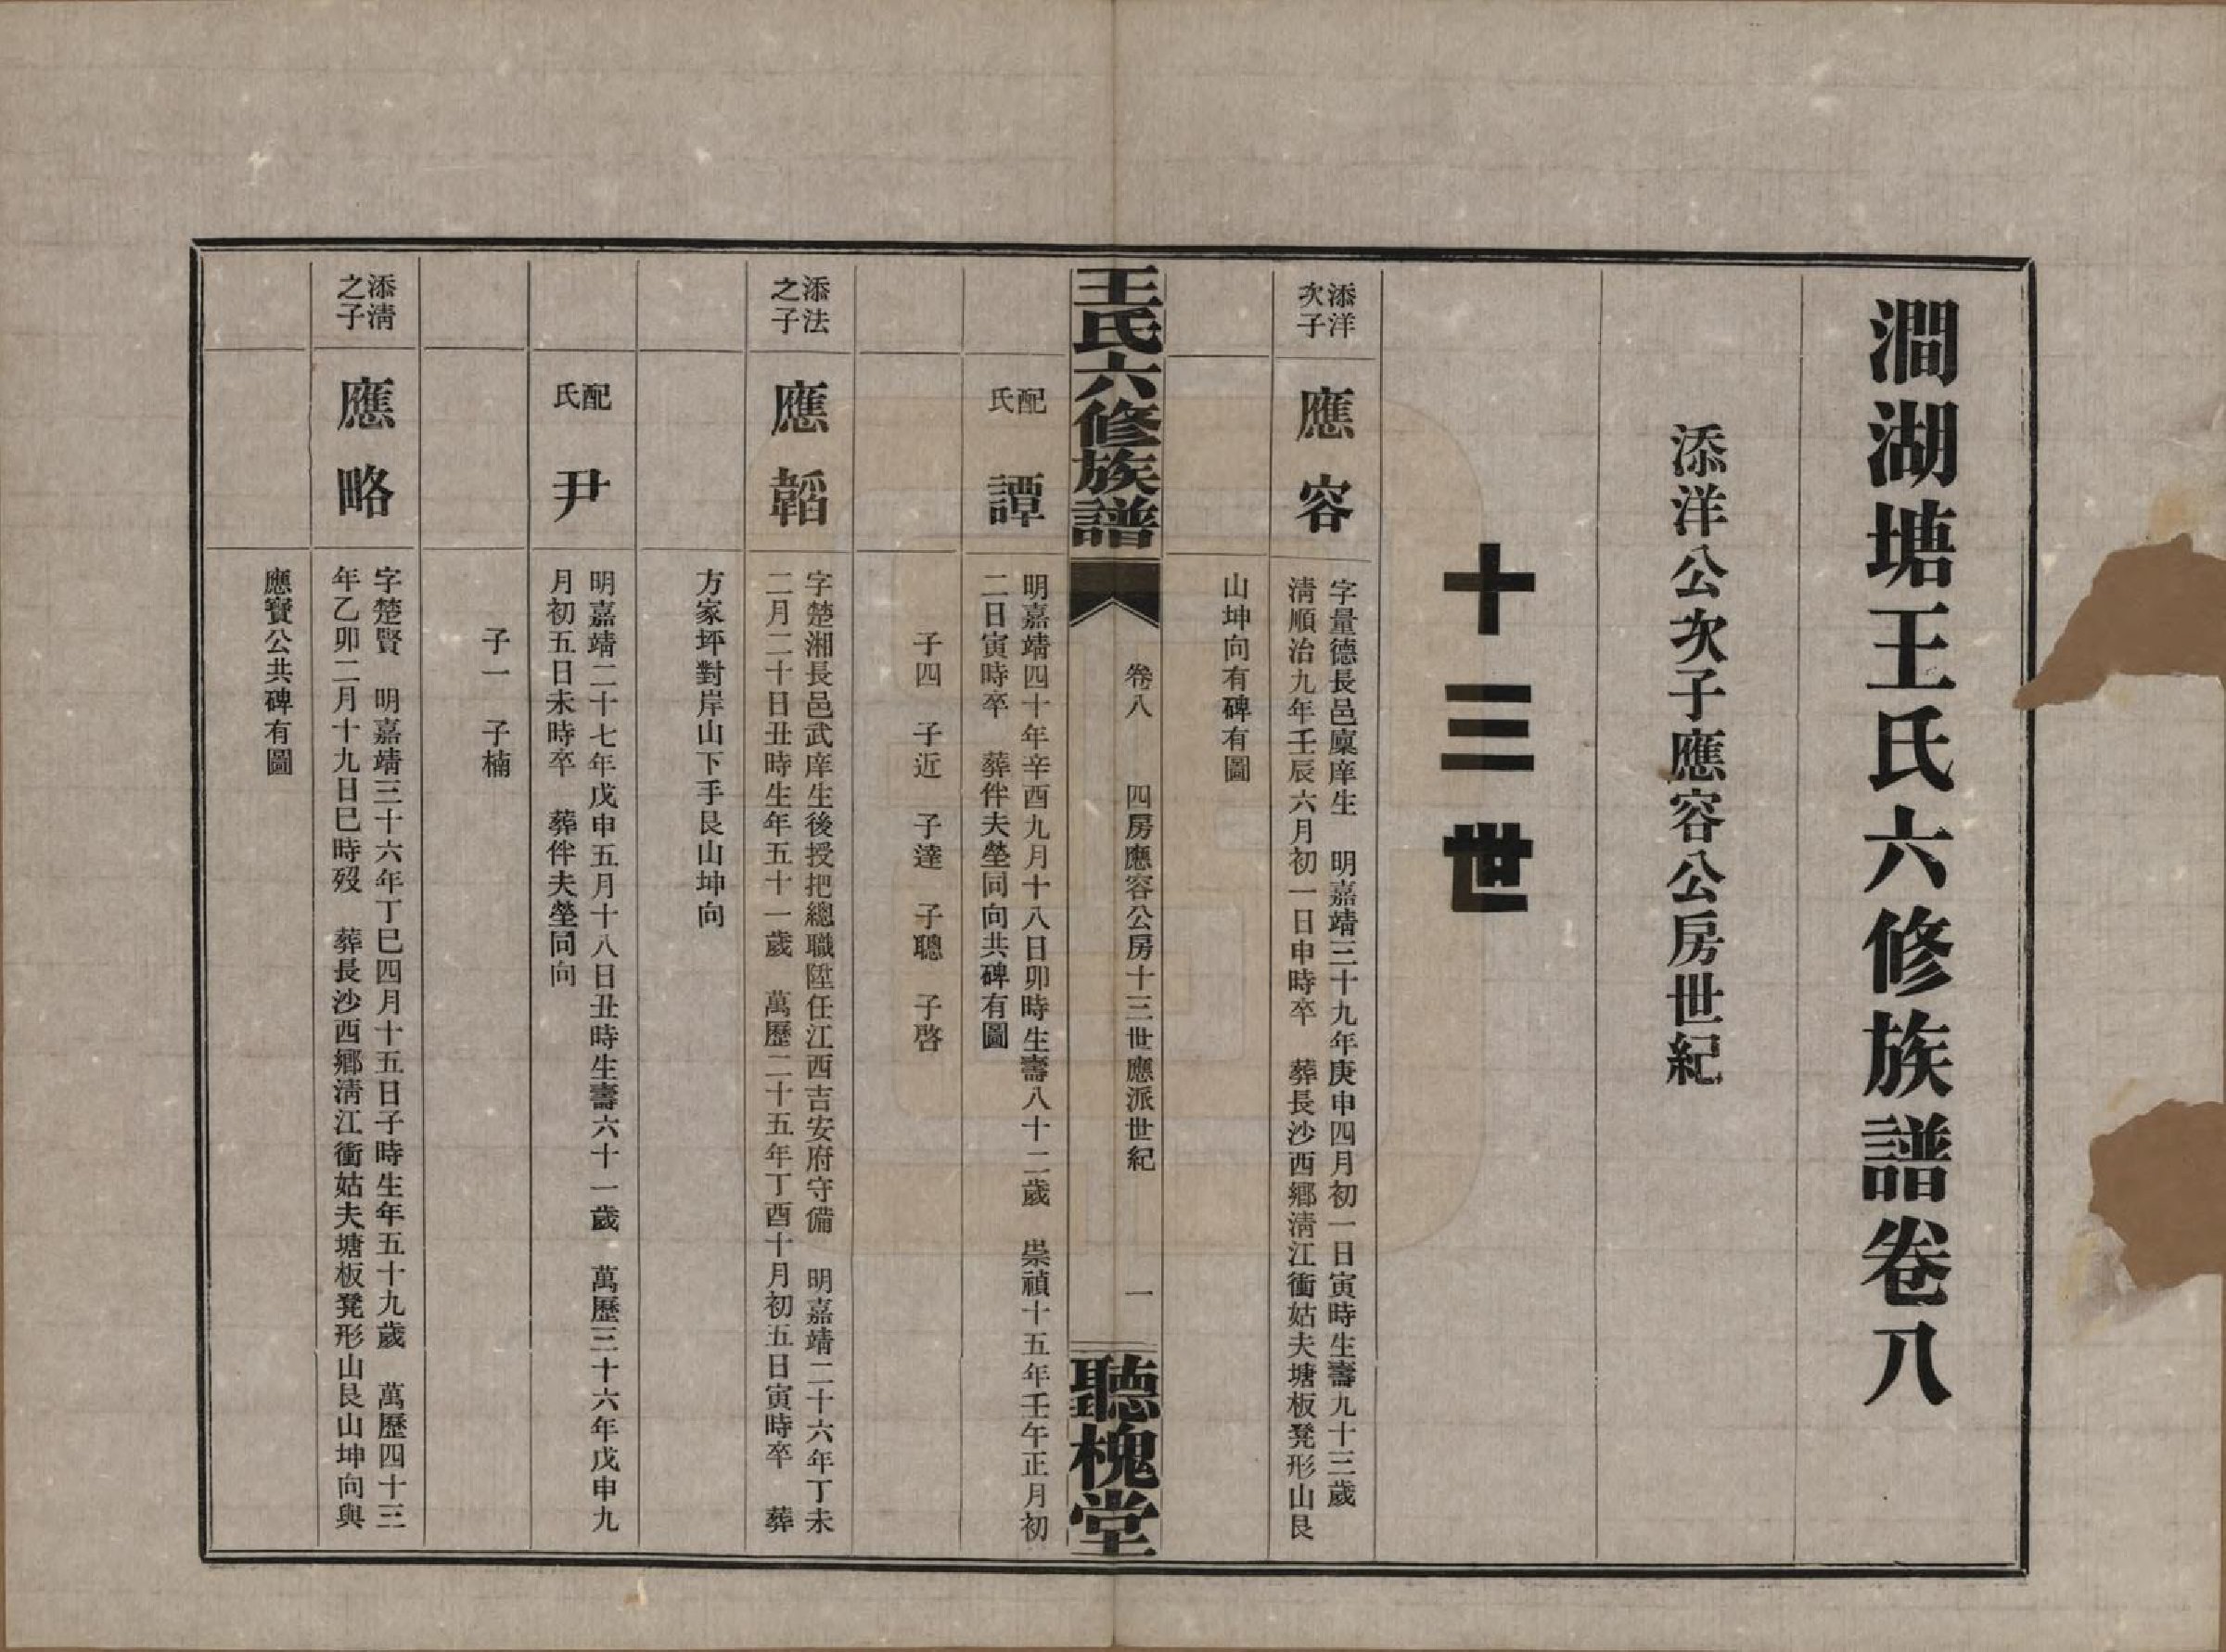 澗湖塘王氏六修族譜卷八
添洋公次子應容公房世紀
十三世
添洋
次子
應容
字量德長邑廩庠生　明嘉靖三十九年庚申四月初一日寅時生壽九十三歲
清順治九年壬辰六月初一日申時卒　葬長沙西鄉清江衝姑夫塘板凳形山艮
山坤向有碑有圖
王氏六修族譜
卷八　四房應容公房十三世應派世紀　一
聽槐堂
配
氏
譚
明嘉靖四十年辛酉九月十八日卯時生壽八十二歲　崇禎十五年壬午正月初
二日寅時卒　葬伴夫塋同向共碑有圖
子四　子近　子達　子聰　子啓
添法
之子
應韜
字楚湘長邑武庠生後授把總職陞任江西吉安府守備　明嘉靖二十六年丁未
二月二十日丑時生年五十一歲　萬歷二十五年丁酉十月初五日寅時卒　葬
方家坪對岸山下手艮山坤向
配
氏
尹
明嘉靖二十七年戊申五月十八日丑時生壽六十一歲　萬歷三十六年戊申九
月初五日未時卒　葬伴夫塋同向
子一　子楠
添清
之子
應略
字楚賢　明嘉靖三十六年丁巳四月十五日子時生年五十九歲　萬歷四十三
年乙卯二月十九日巳時歿　葬長沙西鄉清江衝姑夫塘板凳形山艮山坤向與
應賓公共碑有圖